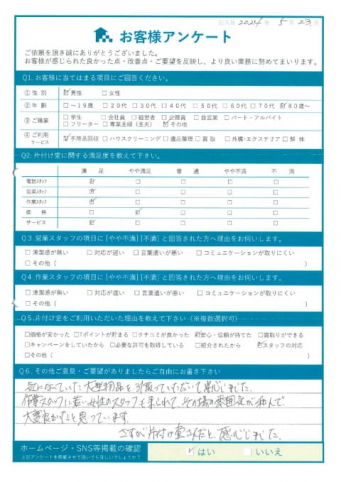 記入日 2024年 5月23日
お客様アンケート
ご依頼を頂き誠にありがとうございました。
お客様が感じられた良かった点・改善点・ご要望を反映し、より良い業務に努めてまいります。
Q1. お客様に当てはまる項目にご回答ください。
① 性 別 ☑男性 □女性
② 年 齢 □~19歳 □20代 □30代 □40代 □50代 □60代 □70代 ☑80歳~
③ ご職業 □学生 □会社員 □経営者 □公務員 □自営業 □パート・アルバイト
□フリーター □専業主婦(主夫) ☑その他
④ ご利用サービス ☑不用品回収 □ハウスクリーニング □遺品整理 □買取 □外構・エクステリア □解体
Q2. 片付け堂に関する満足度を教えて下さい。
満 足 やや満足 普 通 やや不満 不 満
電話スタッフ ☑ □ □ □ □
営業スタッフ ☑ □ □ □ □
作業スタッフ ☑ □ □ □ □
価 格 □ ☑ □ □ □
サービス ☑ □ □ □ □
Q3. 営業スタッフの項目に[やや不満][不満]と回答された方へ理由をお伺いします。
□清潔感が無い □対応が遅い □言葉遣いが悪い □コミュニケーションが取りにくい
□その他( )
Q4. 作業スタッフの項目に[やや不満][不満]と回答された方へ理由をお伺いします。
□清潔感が無い □対応が遅い □言葉遣いが悪い □コミュニケーションが取りにくい
□その他( )
Q5. 片付け堂をご利用いただいた理由を教えて下さい(※複数選択可)
□価格が安かった □Tポイントが貯まる □クチコミが良かった ☑安心・信頼が持てた □買取りができる
□キャンペーンをしていたから □必要な許可を取得している □紹介されたから ☑スタッフの対応
□その他( )
Q6. その他ご意見・ご要望がありましたらご自由にお書き下さい
気になっていた大型物品を引取っていただいて感じました。
作業スタッフに若い女性のスタッフも来られて、片付場の雰囲気が和んで
大変良かったと思っています。
さすが片付け堂さんだと、感心しました。
ホームページ・SNS等掲載の確認
上記アンケートを掲載させて頂いてもよろしいでしょうか?
☑はい □いいえ